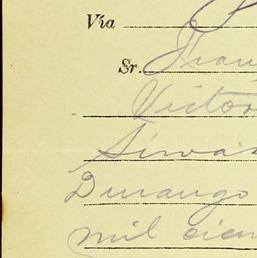 Vía
Sr. Fran
Victor
Sirva
Durango
mil cien